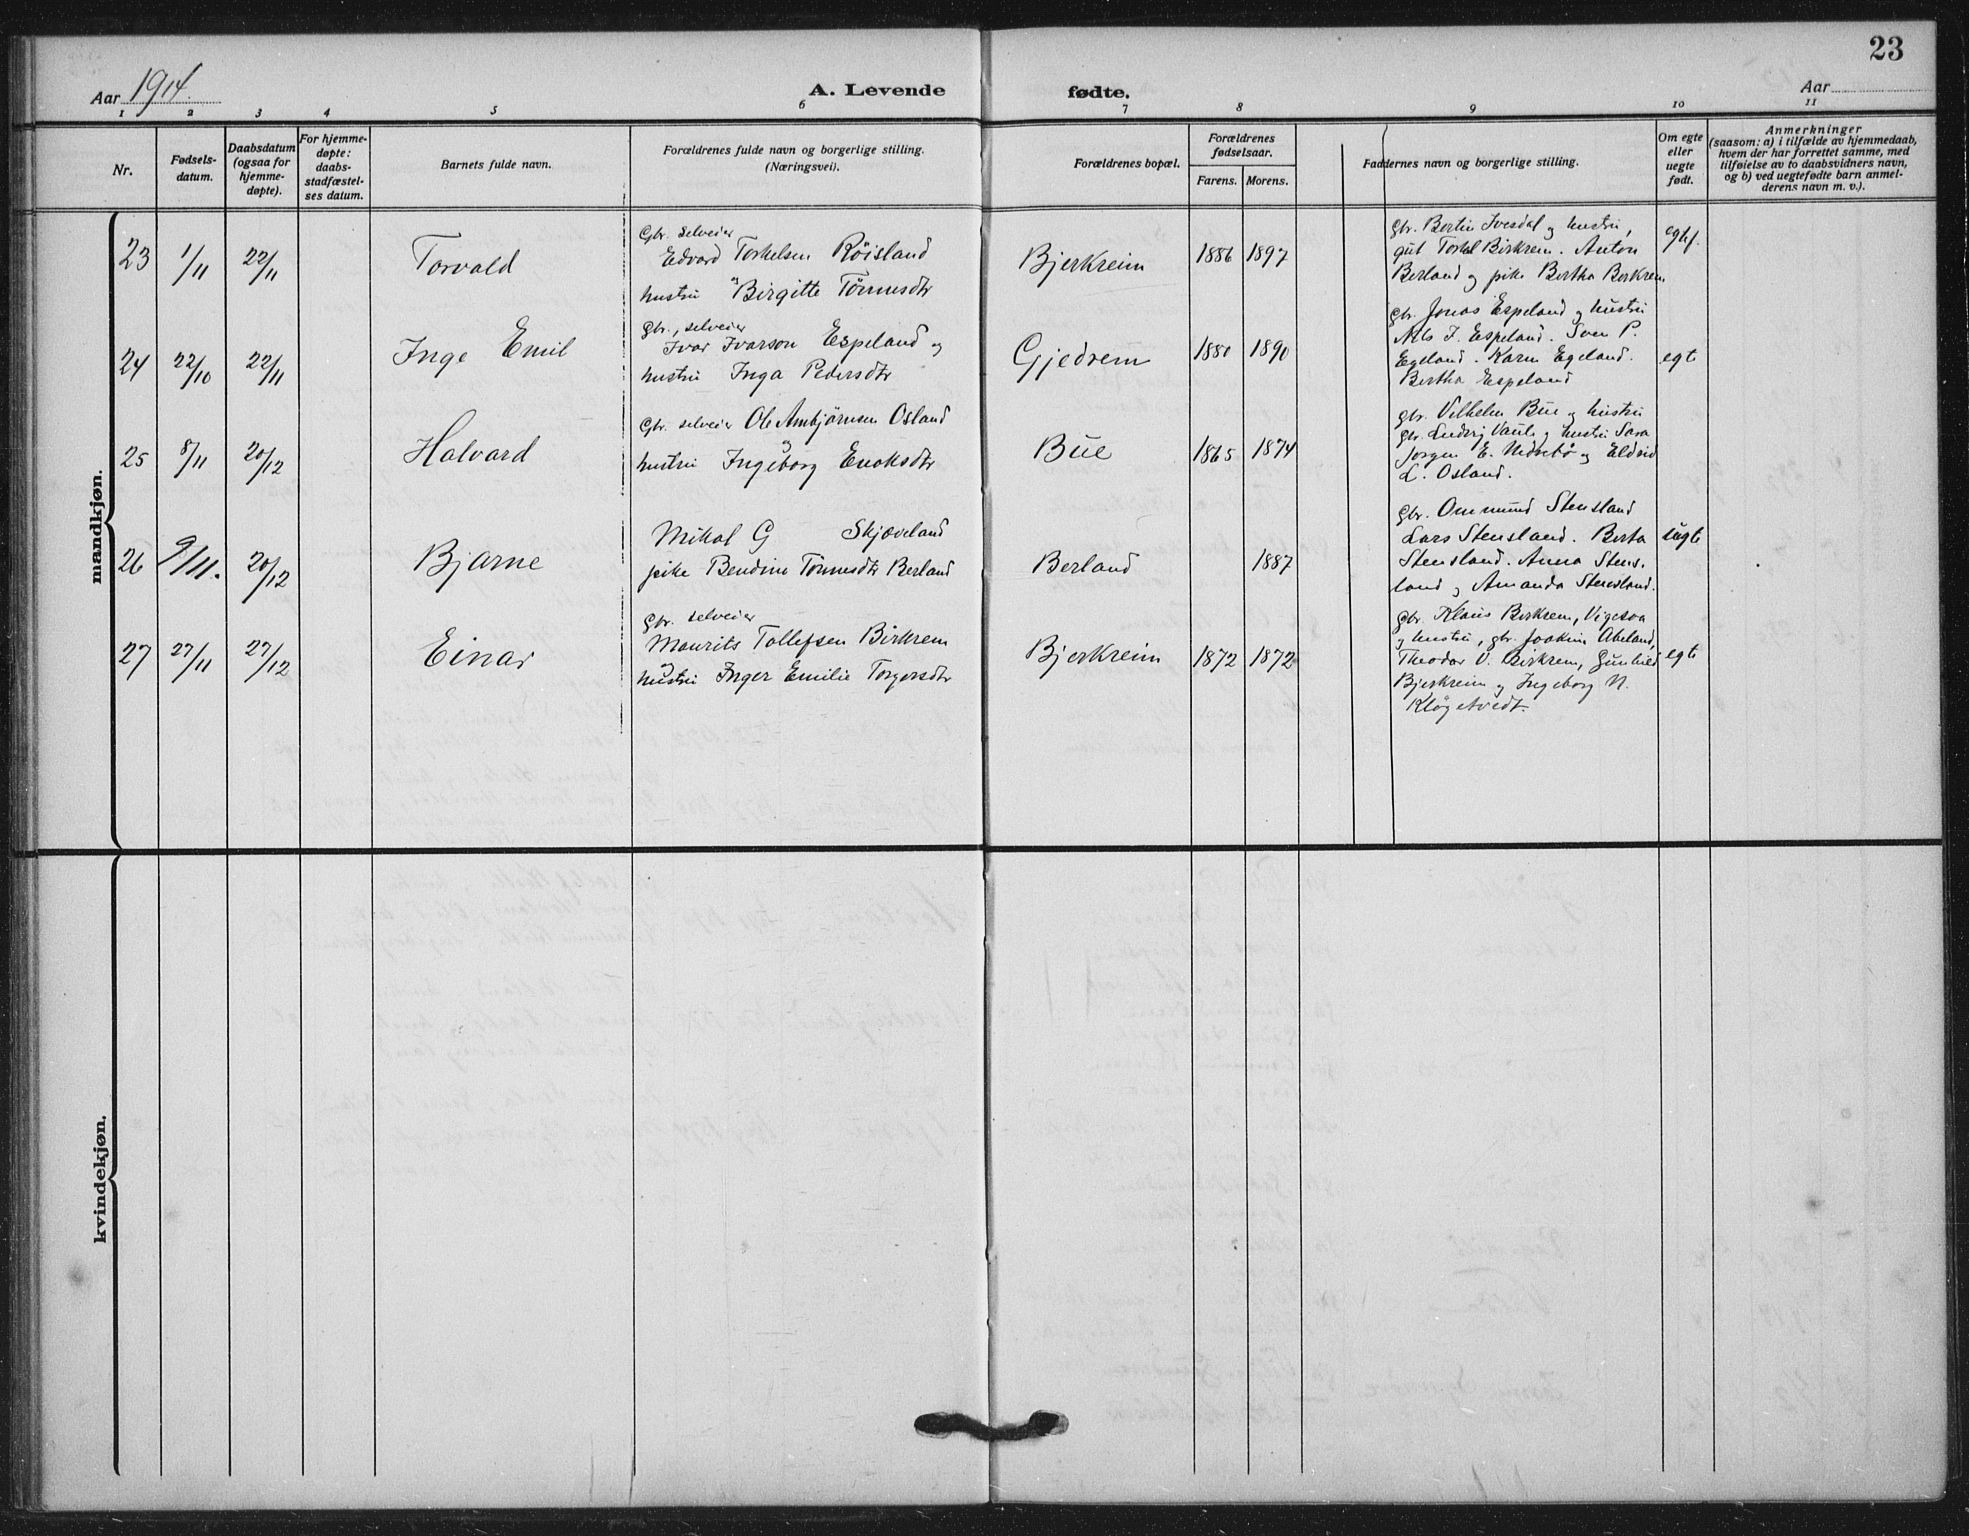 23
Aar 1914.
A. Levende fødte.
Aar
1 2 3 4 5 6 7 8 9 10 11
Nr.
Fødsels-
datum.
Daabsdatum
(ogsaa for
hjemme-
døpte).
For hjemme-
døpte:
daabs-
stadfæstel-
ses datum.
Barnets fulde navn.
Forældrenes fulde navn og borgerlige stilling.
(Næringsvei).
Forældrenes bopæl.
Forældrenes
fødselsaar.
Farens. Morens.
Faddernes navn og borgerlige stilling.
Om egte
eller
uegte
født.
Anmerkninger
(saasom: a) i tilfælde av hjemmedaab,
hvem der har forrettet samme, med
tilføielse av to daabsvidners navn,
og b) ved uegtefødte barn anmel-
derens navn m. v.).
mandkjøn.
23 1/11 22/11 Torvald
Gbr. selveier
Edvard Torkelsen Röisland
hustru Birgitte Tönnesdtr
Bjerkreim 1886 1897
gbr. Bertin Ivesdal og hustru,
gut Torkel Birkrem. Anton
Berland og pike Bertha Berkrem
egtf.
24 22/10 22/11 Inge Emil
gbr., selveier
Ivar Ivarson Espeland og
hustru Inga Pedersdtr
Gjedrem 1880 1890
gbr. Jonas Espeland og hustru
Nils I. Espeland. Sven P.
Egeland. Karen Egeland.
Bertha Espeland
egt
25 8/11 20/12 Halvard
Gbr. selveier Ole Ambjörnsen Osland
hustru Ingeborg Enoksdtr
Bue 1865 1874
gbr. Vilhelm Bue og hustru
gbr. Ludvig Vaule og hustru Sara
Jorgen E. Nedrebø og Eldrid
L. Osland.
26 9/11. 20/12 Bjarne
Mikal G Skjæveland
pike Bendine Tönnesdtr Berland
Berland 1887
gbr. Ommund Stensland
Lars Stensland. Berta
Stensland. Anna Stens-
land og Amanda Stensland.
uegt
27 27/11 27/12 Einar
gbr. selveier
Maurits Tollefsen Birkrem
hustru Inger Emilie Torgersdtr
Bjerkreim 1872 1872
gbr. Klaus Berkrem, Vigesaa
og hustru, gbr. Joakim Abeland,
Theodor V. Birkrem, Gunhild
Bjerkreim og Ingeborg N.
Kløgetvedt.
egte
kvindekjøn.